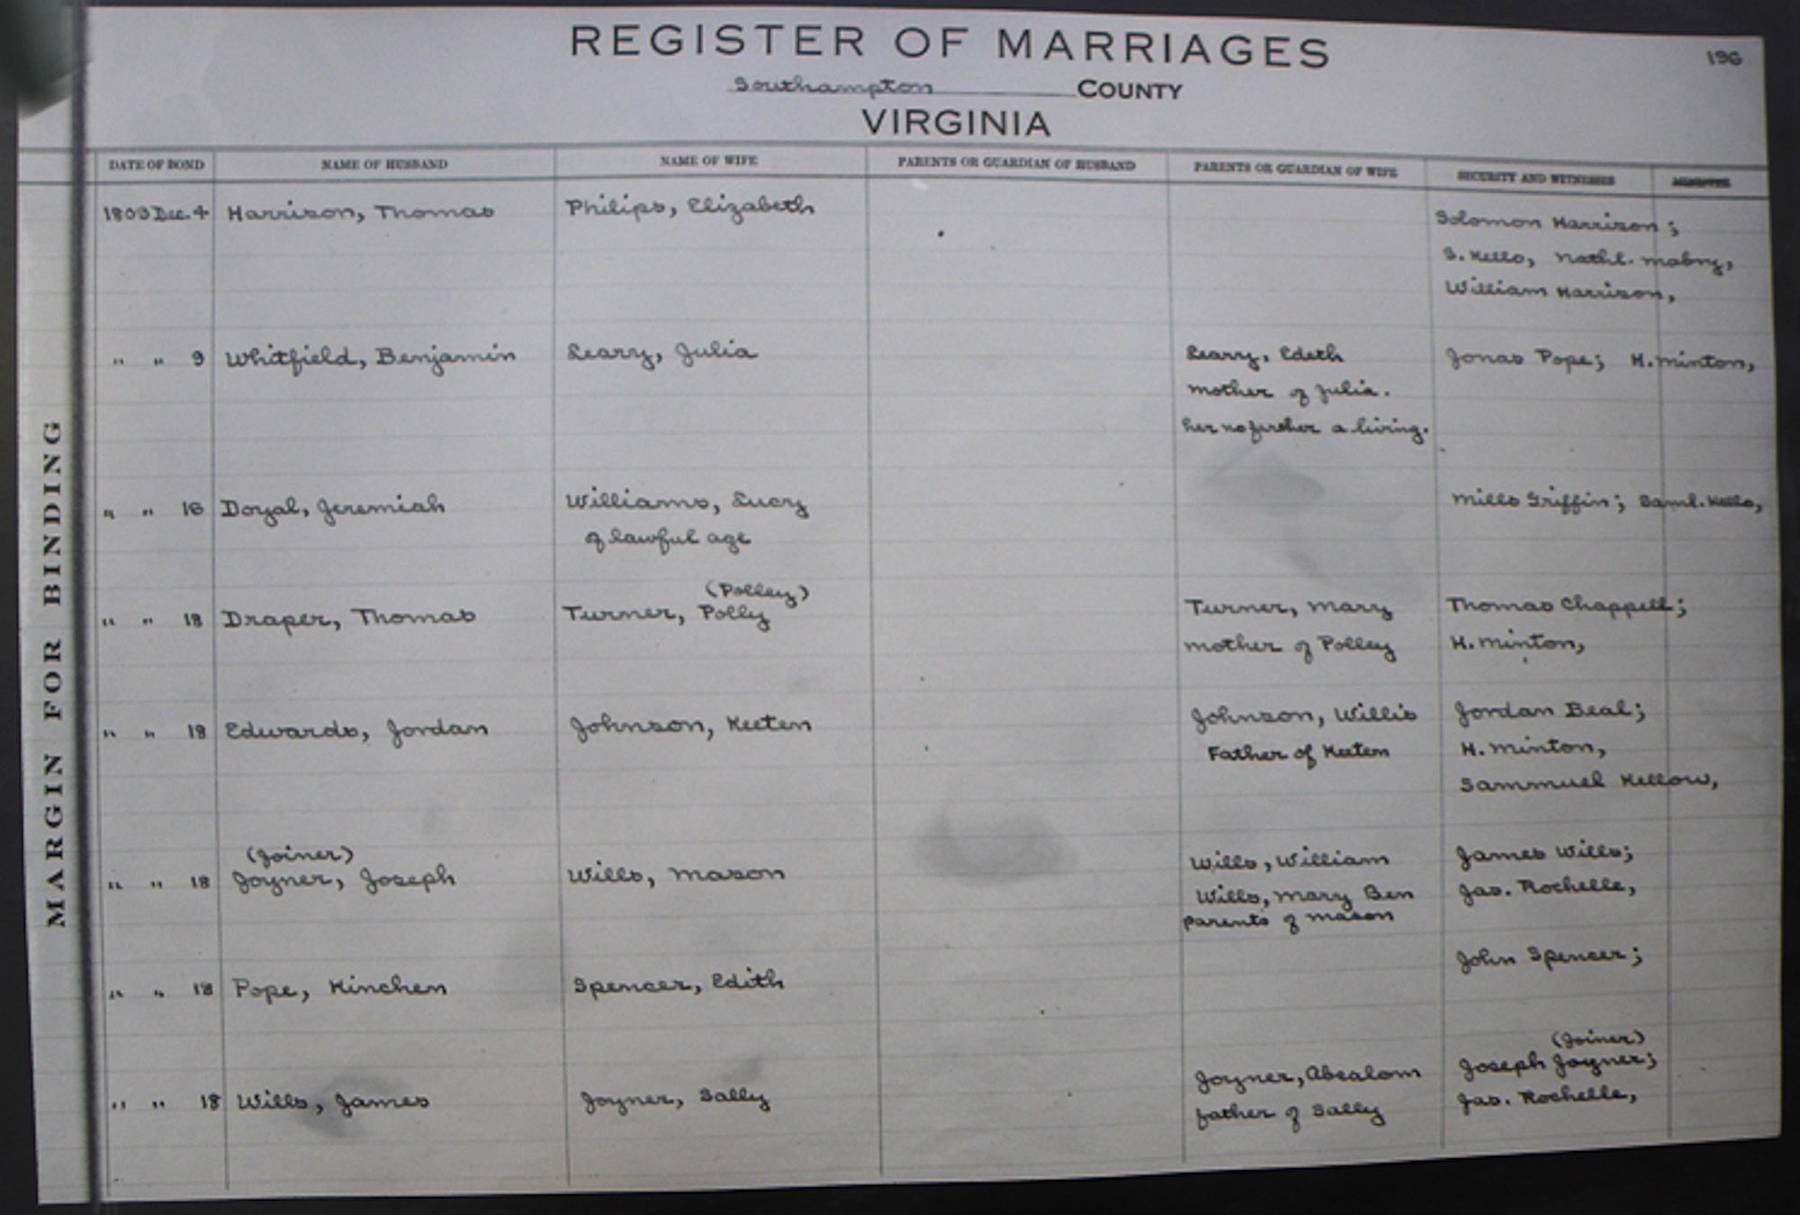 REGISTER OF MARRIAGES
196
Southampton COUNTY
VIRGINIA
DATE OF BOND NAME OF HUSBAND NAME OF WIFE PARENTS OR GUARDIAN OF HUSBAND PARENTS OR GUARDIAN OF WIFE SECURITY AND WITNESSES MINISTER
1803 Dec. 4 Harrison, Thomas Philips, Elizabeth Solomon Harrison;
S. Kello, Nathl. Mabry,
William Harrison,
" " 9 Whitfield, Benjamin Searry, Julia Searry, Edeth Jonas Pope; H. Minton,
mother of Julia.
her no further a living.
" " 16 Doyal, Jeremiah Williams, Lucy Mills Griffin; Saml. Kello,
of lawful age
(Polley)
" " 18 Draper, Thomas Turner, Polly Turner, Mary Thomas Chappell;
mother of Polley H. Minton,
" " 18 Edwards, Jordan Johnson, Keeten Johnson, Willis Jordan Beal;
Father of Keeten H. Minton,
Sammuel Kellow,
(Joiner)
" " 18 Joyner, Joseph Wills, Mason Wills, William James Wills;
Wills, Mary Ben Jas. Rochelle,
parents of Mason
" " 18 Pope, Kinchen Spencer, Edith John Spencer;
(Joiner)
" " 18 Wills, James Joyner, Sally Joyner, Absalom Joseph Joyner;
father of Sally Jas. Rochelle,
MARGIN FOR BINDING